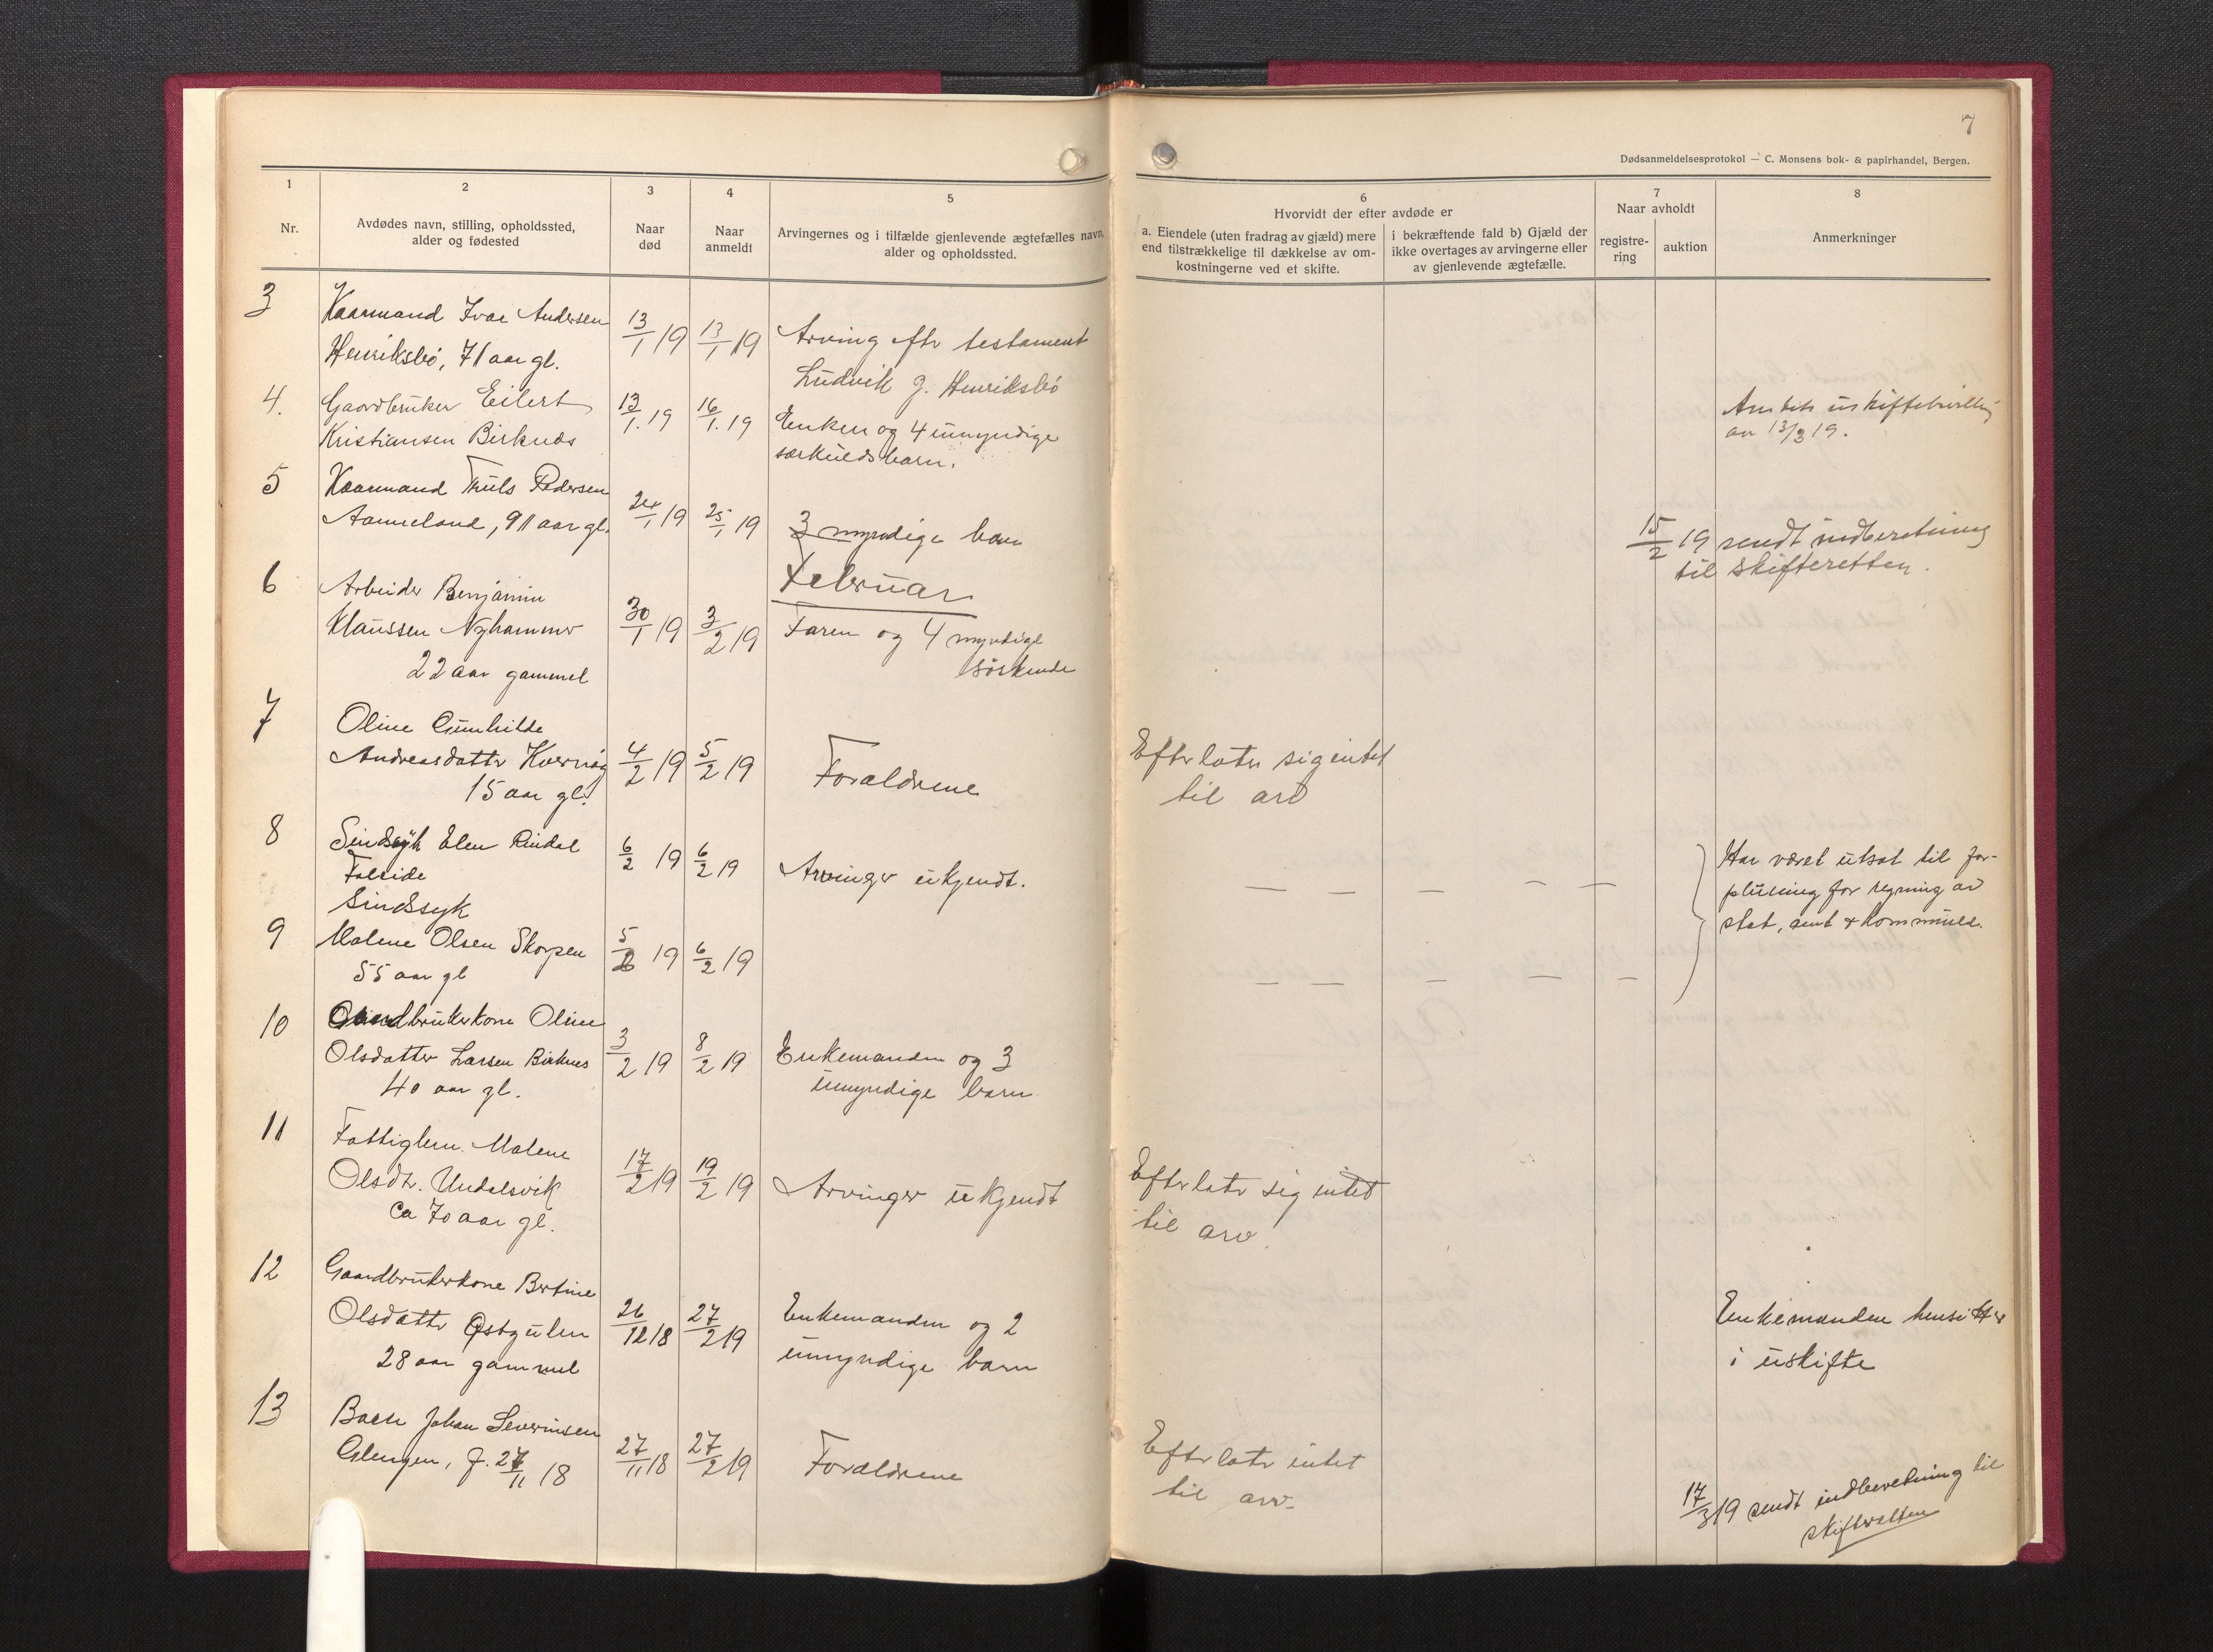 7
Dødsanmeldelsesprotokol — C. Monsens bok- & papirhandel, Bergen.
1
Nr.
2
Avdødes navn, stilling, opholdssted,
alder og fødested
3
Naar
død
4
Naar
anmeldt
5
Arvingernes og i tilfælde gjenlevende ægtefælles navn,
alder og opholdssted.
6
Hvorvidt der efter avdøde er
a. Eiendele (uten fradrag av gjæld) mere
end tilstrækkelige til dækkelse av om-
kostningerne ved et skifte.
i bekræftende fald b) Gjæld der
ikke overtages av arvingerne eller
av gjenlevende ægtefælle.
7
Naar avholdt
registre-
ring
auktion
8
Anmerkninger
3
Kaarmand Ivar Andersen
Henriksbö, 71 aar gl.
13/1 19
13/1 19
Arving eftr testament
Ludvik J. Henriksbö
4.
Gaardbruker Eilert
Kristiansen Birknes
13/1. 19
16/1. 19
Enken og 4 umyndige
særkuldsbarn.
Amtets uskiftebevilling
av 13/3 19.
5
Kaarmand Truls Pedersen
Aameland, 91 aar gl.
24/1 19
25/1 19
3 myndige barn
15/2 19 sendt indberetning
til skifteretten.
Februar
6
Arbeider Benjamin
Klaussen Nyhammer
22 aar gammel
30/1 19
3/2 19
Faren og 4 myndige
söskende
7
Oline Gunhilde
Andreasdattr Kvernöy
15 aar gl.
4/2 19
5/2 19
Forældrene
Efterlater sig intet
til arv
8
Sindsyk Elen Rindal
Folside
Sindssyk
6/2 19
6/2 19
Arvinger ukjendt.
— — — — —
Har været utsat til for-
pleining for regning av
stat, amt & kommune.
9
Malene Olsen Skorpen
55 aar gl
5/2 19
6/2 19
— — — — —
10
Gaardbrukerkone Oline
Olsdatter Larsen Birknes
40 aar gl.
3/2 19
8/2 19
Enkemanden og 3
umyndige barn
11
Fattiglem. Malene
Olsdtr. Undalsvik
Ca 70 aar gl.
17/2 19
19/2 19
Arvinger ukjendt
Efterlatr sig intet
til arv.
12
Gaardbrukerkone Bertine
Olsdattr Østgulen
28 aar gammel
26/12 18
27/2 19
Enkemanden og 2
umyndige barn
Enkemanden hensitter
i uskifte
13
Barn Johan Severinsen
Glengen, f. 27/11 18
27/11 18
27/2 19
Forældrene
Efterlatr intet
til arv.
17/3 19 sendt indberetning til
skifteretten